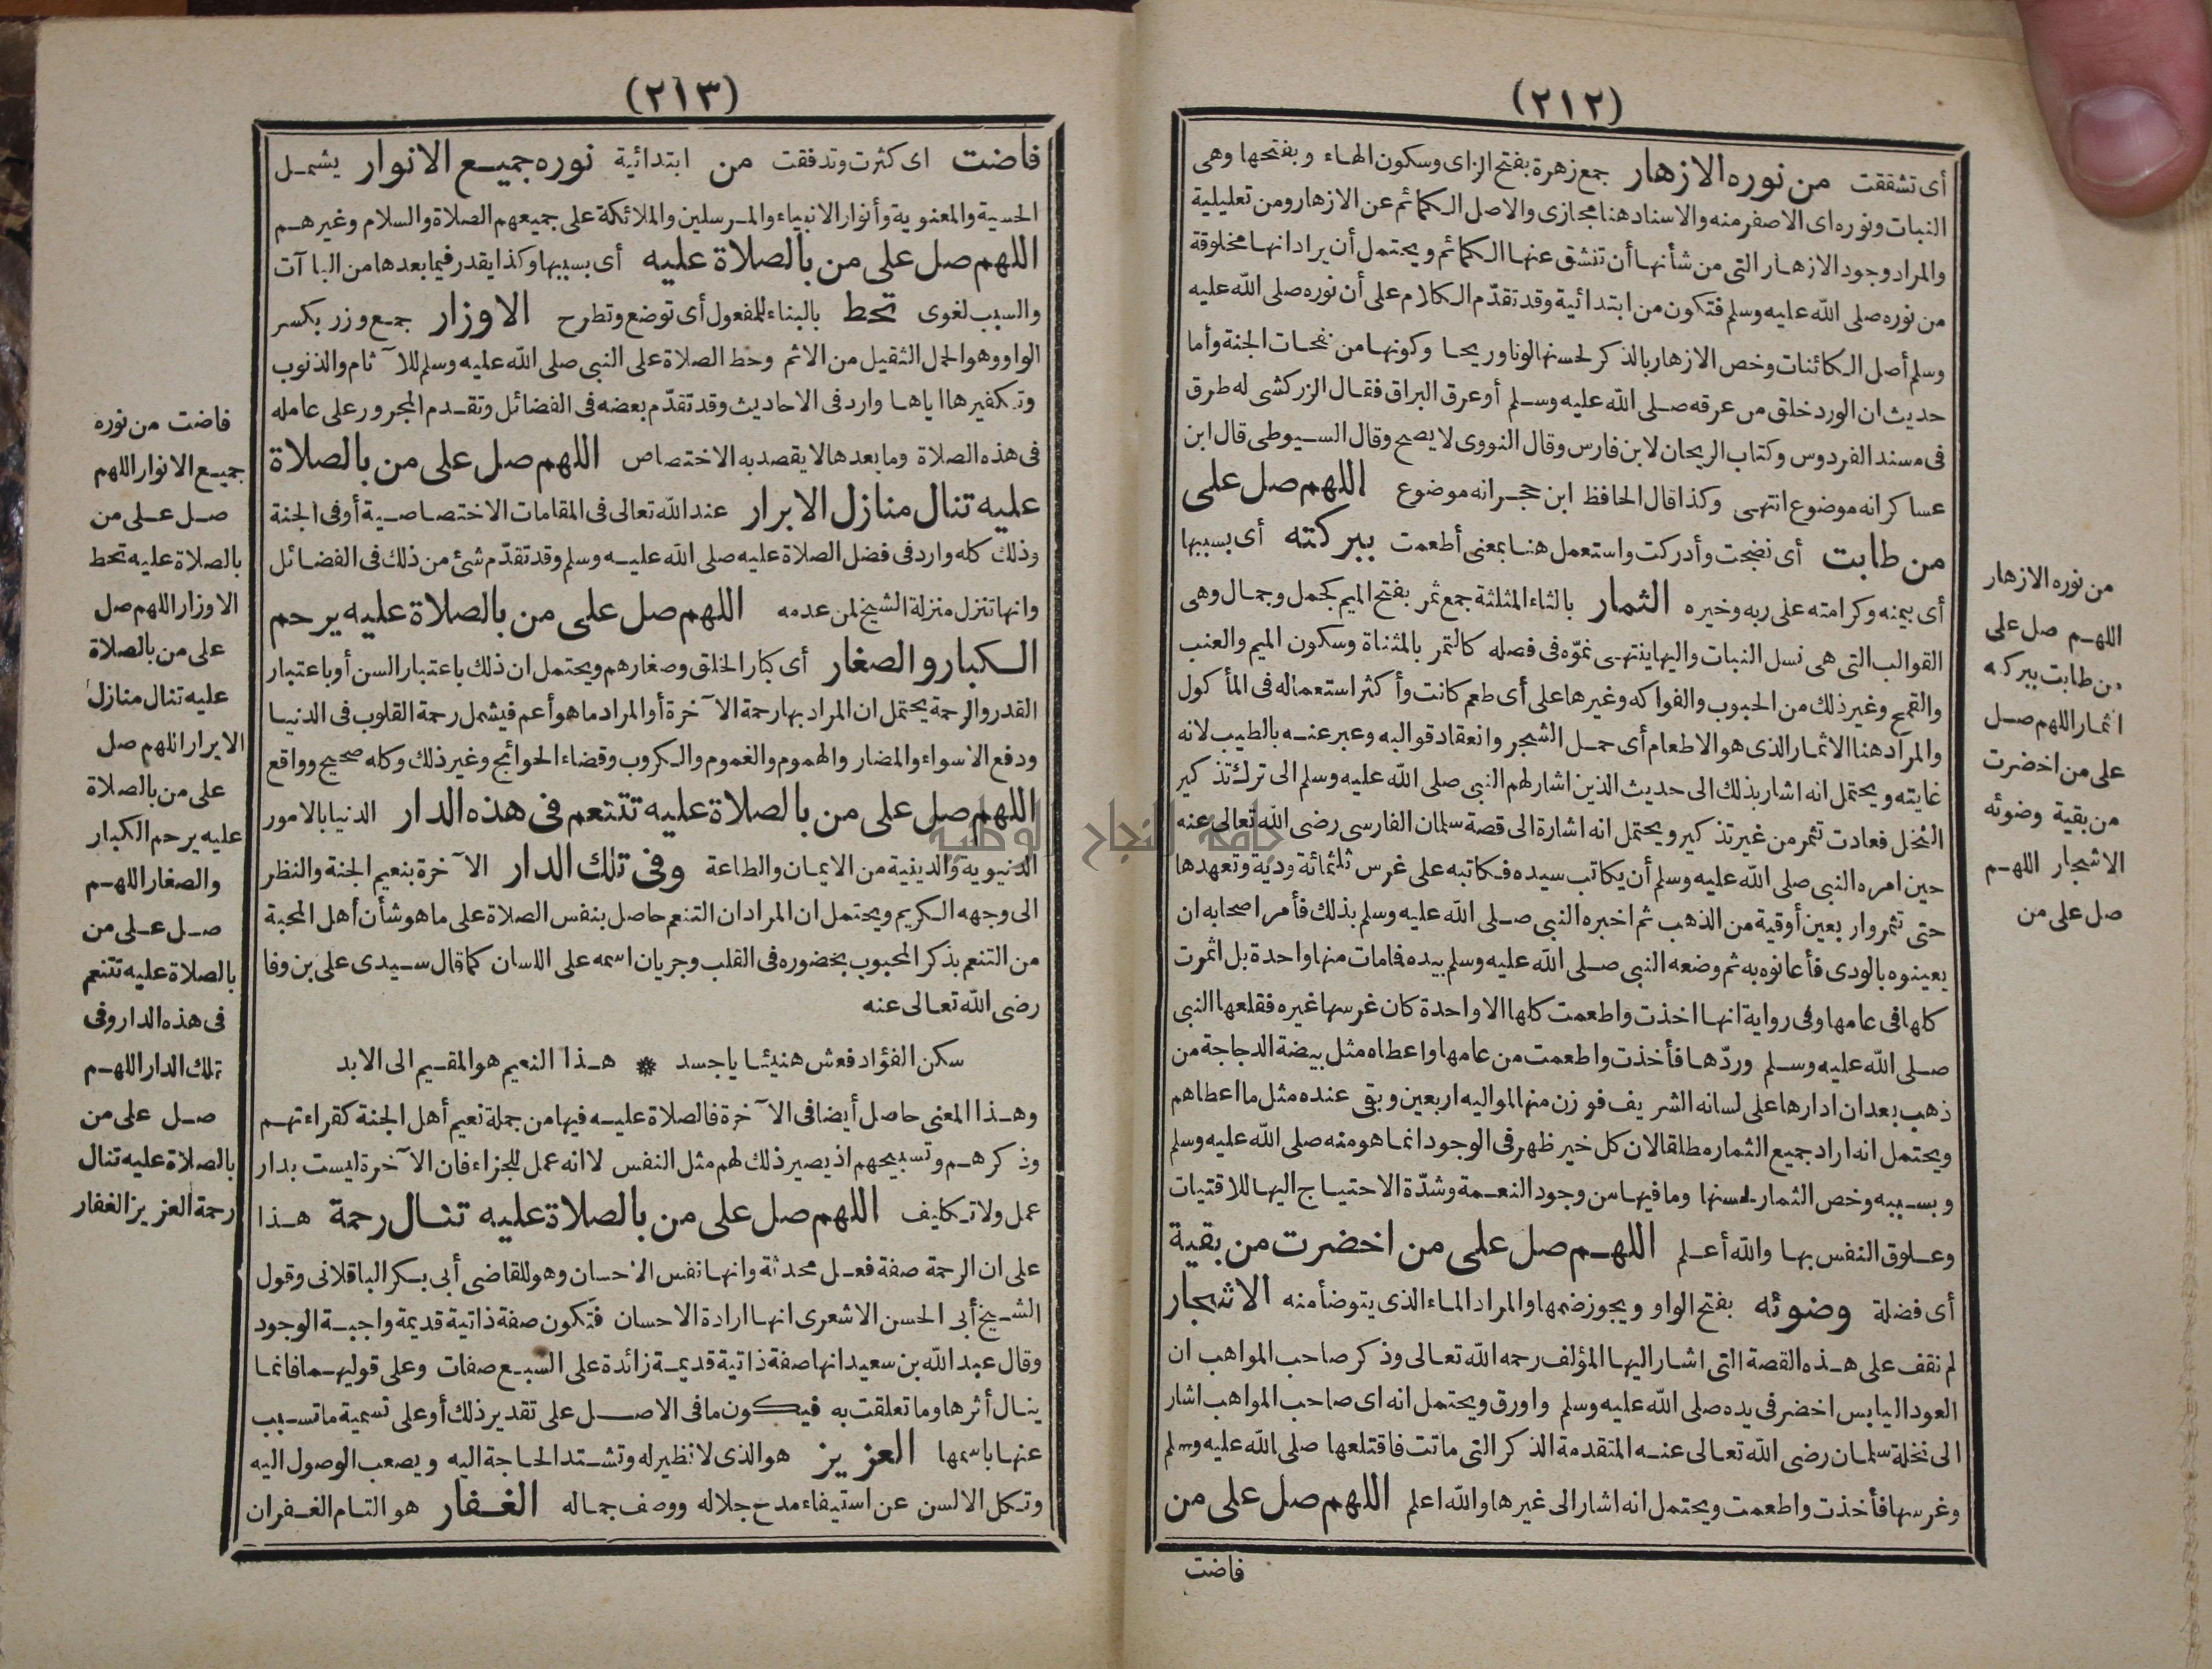 (٢١٢)
أى تشققت من نوره الازهار جمع زهرة بفتح الزاى وسكون الهاء وبفتحها وهى
النبات ونوره اى الاصفر منه والاسناد هنا مجازى والاصل الكمائم عن الازهار ومن تعليلية
والمراد وجود الازهار التى من شأنها أن تنشق عنها الكمائم ويحتمل أن يراد انها مخلوقة
من نوره صلى الله عليه وسلم فتكون من ابتدائية وقد تقدّم الكلام على أن نوره صلى الله عليه
وسلم أصل الكائنات وخص الازهار بالذكر لحسنها لونا وريحا وكونها من نفحات الجنة وأما
حديث ان الورد خلق من عرقه صلى الله عليه وسلم أو عرق البراق فقال الزركشى له طرق
فى مسند الفردوس وكتاب الريحان لابن فارس وقال النووى لا يصح وقال السيوطى قال ابن
عساكر انه موضوع انتهى وكذا قال الحافظ ابن حجر انه موضوع اللهم صل على
من طابت أى نضجت وأدركت واستعمل هنا بمعنى أطعمت ببركته أى بسببها
أى بيمنه وكرامته على ربه وخيره الثمار بالثاء المثلثة جمع ثمر بفتح الميم كجمل وجمال وهى
القوالب التى هى نسل النبات واليها ينتهى نموّه فى فصله كالتمر بالمثناة وسكون الميم والعنب
والقمح وغير ذلك من الحبوب والفواكه وغيرها على أى طعم كانت وأكثر استعماله فى المأكول
والمراد هنا الاثمار الذى هو الاطعام أى حمل الشجر وانعقاد قوالبه وعبر عنه بالطيب لانه
غايته ويحتمل انه اشار بذلك الى حديث الذين اشار لهم النبى صلى الله عليه وسلم الى ترك تذكير
النخل فعادت تثمر من غير تذكير ويحتمل انه اشارة الى قصة سلمان الفارسى رضى الله تعالى عنه
حين امره النبى صلى الله عليه وسلم أن يكاتب سيده فكاتبه على غرس ثلثمائة ودية وتعهدها
حتى تثمر واربعين أوقية من الذهب ثم اخبره النبى صلى الله عليه وسلم بذلك فأمر اصحابه ان
يعينوه بالودى فأعانوه به ثم وضعه النبى صلى الله عليه وسلم بيده فامات منها واحدة بل اثمرت
كلها فى عامها وفى رواية انها اخذت واطعمت كلها الا واحدة كان غرسها غيره فقلعها النبى
صلى الله عليه وسلم وردّها فأخذت واطعمت من عامها واعطاه مثل بيضة الدجاجة من
ذهب بعد ان ادارها على لسانه الشريف فوزن منها لمواليه اربعين وبقى عنده مثل ما اعطاهم
ويحتمل انه اراد جميع الثمار مطلقا لان كل خير ظهر فى الوجود انما هو منه صلى الله عليه وسلم
وبسببه وخص الثمار لحسنها وما فيها من وجود النعمة وشدّة الاحتياج اليها للاقتيات
وعلوق النفس بها والله أعلم اللهم صل على من اخضرت من بقية
أى فضلة وضوئه بفتح الواو ويجوز ضمها والمراد الماء الذى يتوضأ منه الاشجار
لم نقف على هذه القصة التى اشار اليها المؤلف رحمه الله تعالى وذكر صاحب المواهب ان
العود اليابس اخضر فى يده صلى الله عليه وسلم واورق ويحتمل انه اى صاحب المواهب اشار
الى نخلة سلمان رضى الله تعالى عنه المتقدمة الذكر التى ماتت فاقتلعها صلى الله عليه وسلم
وغرسها فأخذت واطعمت ويحتمل انه اشار الى غيرها والله اعلم اللهم صل على من
فاضت
من نوره الازهار
اللهم صل على
من طابت ببركته
الثمار اللهم صل
على من اخضرت
من بقية وضوئه
الاشجار اللهم
صل على من
(٢١٣)
فاضت اى كثرت وتدفقت من ابتدائية نوره جميع الانوار يشمل
الحسية والمعنوية وأنوار الانبياء والمرسلين والملائكة على جميعهم الصلاة والسلام وغيرهم
اللهم صل على من بالصلاة عليه أى بسببها وكذا يقدر فيما بعدها من الباآت
والسبب لغوى تحط بالبناء للمفعول أى توضع وتطرح الاوزار جمع وزر بكسر
الواو وهو الحمل الثقيل من الاثم وحط الصلاة على النبى صلى الله عليه وسلم للآثام والذنوب
وتكفيرها اياها وارد فى الاحاديث وقد تقدّم بعضه فى الفضائل وتقدم المجرور على عامله
فى هذه الصلاة وما بعدها لا يقصد به الاختصاص اللهم صل على من بالصلاة
عليه تنال منازل الابرار عند الله تعالى فى المقامات الاختصاصية أو فى الجنة
وذلك كله وارد فى فضل الصلاة عليه صلى الله عليه وسلم وقد تقدّم شئ من ذلك فى الفضائل
وانها تنزل منزلة الشيخ لمن عدمه اللهم صل على من بالصلاة عليه يرحم
الكبار والصغار أى كبار الخلق وصغارهم ويحتمل ان ذلك باعتبار السن أو باعتبار
القدر والرحمة يحتمل ان المراد بها رحمة الآخرة أو المراد ما هو أعم فيشمل رحمة القلوب فى الدنيا
ودفع الاسواء والمضار والهموم والغموم والكروب وقضاء الحوائج وغير ذلك وكله صحيح وواقع
اللهم صل على من بالصلاة عليه تتنعم فى هذه الدار الدنيا بالامور
الدنيوية والدينية من الايمان والطاعة وفى تلك الدار الآخرة بنعيم الجنة والنظر
الى وجهه الكريم ويحتمل ان المراد ان التنعم حاصل بنفس الصلاة على ما هو شأن أهل المحبة
من التنعم بذكر المحبوب بحضوره فى القلب وجريان اسمه على اللسان كما قال سيدى على بن وفا
رضى الله تعالى عنه
سكن الفؤاد فعش هنيئا يا جسد * هذا النعيم هو المقيم الى الابد
وهذا المعنى حاصل أيضا فى الآخرة فالصلاة عليه فيها من جملة نعيم أهل الجنة كقراءتهم
وذكرهم وتسبيحهم اذ يصير ذلك لهم مثل النفس لا انه عمل للجزاء فان الآخرة ليست بدار
عمل ولا تكليف اللهم صل على من بالصلاة عليه تنال رحمة هذا
على ان الرحمة صفة فعل محدثة وانها نفس الاحسان وهو للقاضى أبى بكر الباقلانى وقول
الشيخ أبى الحسن الاشعرى انها ارادة الاحسان فتكون صفة ذاتية قديمة واجبة الوجود
وقال عبد الله بن سعيد انها صفة ذاتية قديمة زائدة على السبع صفات وعلى قوليهما فانما
ينال أثرها وما تعلقت به فيكون ما فى الاصل على تقدير ذلك أو على تسمية ما تسبب
عنها باسمها العزيز هو الذى لا نظير له وتشتد الحاجة اليه ويصعب الوصول اليه
وتكل الالسن عن استيفاء مدح جلاله ووصف جماله الغفار هو التام الغفران
فاضت من نوره
جميع الانوار اللهم
صل على من
بالصلاة عليه تحط
الاوزار اللهم صل
على من بالصلاة
عليه تنال منازل
الابرار اللهم صل
على من بالصلاة
عليه يرحم الكبار
والصغار اللهم
صل على من
بالصلاة عليه تتنعم
فى هذه الدار وفى
تلك الدار اللهم
صل على من
بالصلاة عليه تنال
رحمة العزيز الغفار
جامعة النجاح الوطنية